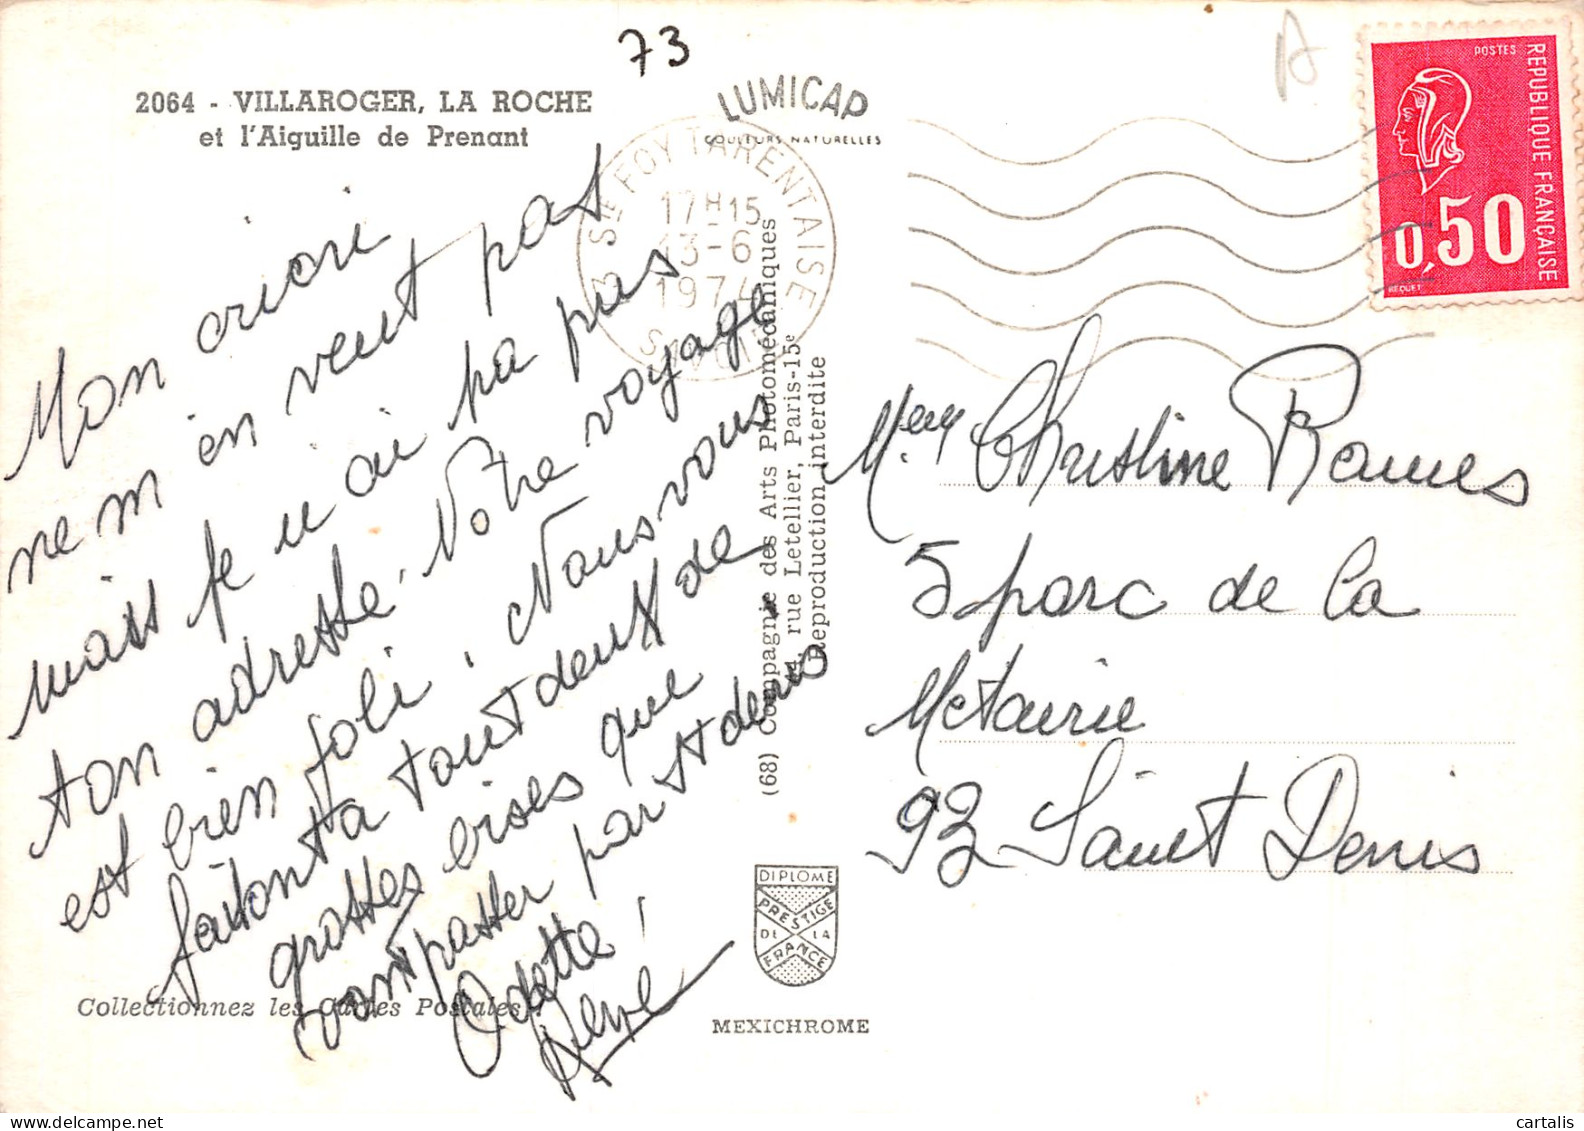 73
2064 - VILLAROGER, LA ROCHE
et l'Aiguille de Prenant
LUMICAP
COULEURS NATURELLES
73 Ste FOY TARENTAISE
17H15
13-6
1974
SAVOIE
POSTES
REPUBLIQUE FRANÇAISE
0,50
BEQUET
Mon cricri
ne m'en veut pas
mais je n'ai pa pus
ton adresse. Votre voyage
est bien joli. Nous vous
faisont a tout deux de
grosses bises que
vont passer par St denis
Odette
Collectionnez les Cartes Postales !
(68) Compagnie des Arts Photomécaniques
rue Letellier, Paris-15e
Reproduction interdite
DIPLOME
PRESTIGE
DE LA
FRANCE
MEXICHROME
Christine Rames
5 parc de la
Metairie
93 Saint Denis
cartalis